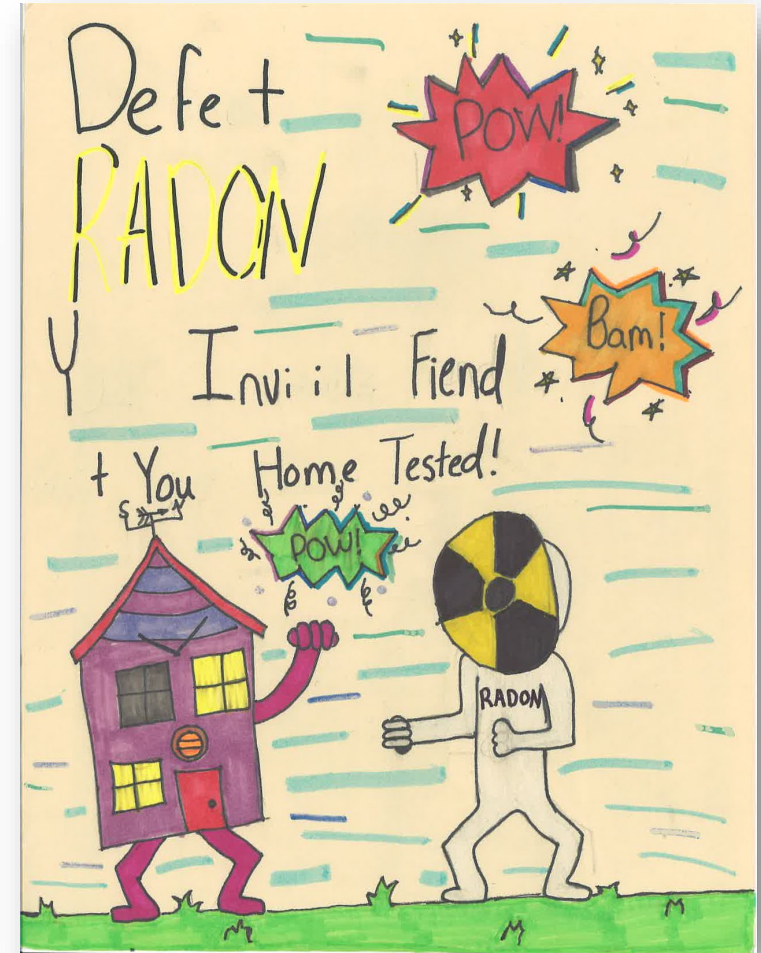 Defe t
POW!
RADON
Bam!
Y Invi i l Fiend
t You Home Tested!
S
POW!
RADON